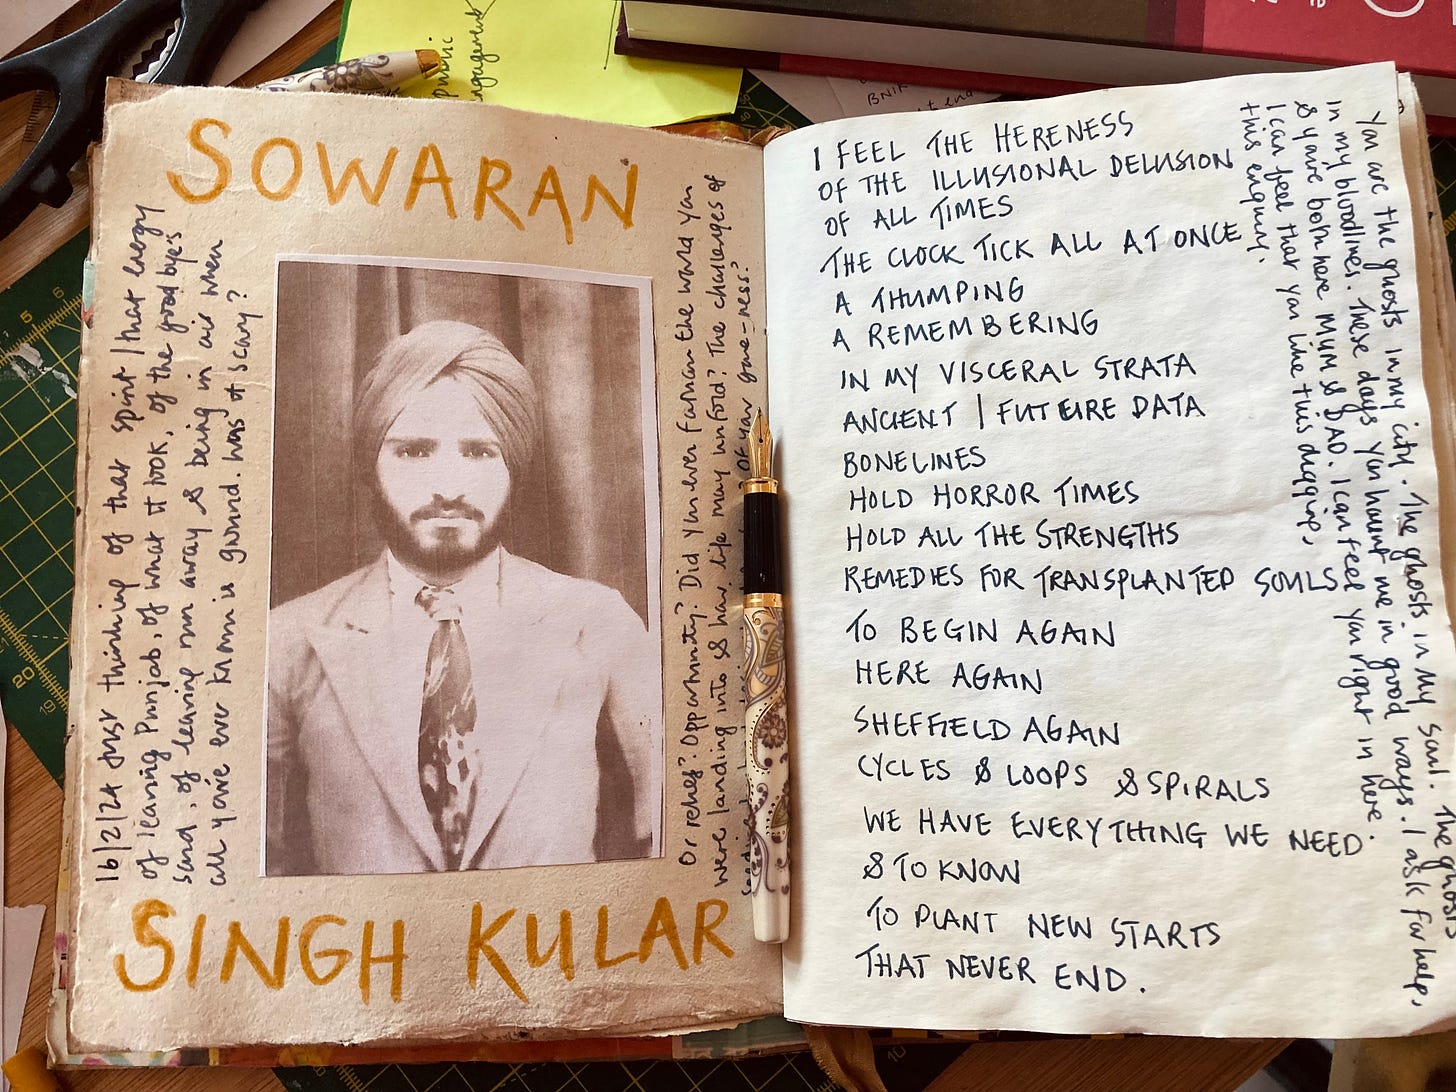 SOWARAN
16/2/24 just thinking of that spirit / that energy
of leaving Punjab, of what it took, of the goodbye's
said, of leaving mm away & being in air when
all you've ever known is ground. Was it scary?
Or relief? Opportunity? Did you ever fathom the world you
were landing into & how life may unfold? The challenges of
of your gone-ness?
SINGH KULAR
I FEEL THE HERENESS
OF THE ILLUSIONAL DELUSION
OF ALL TIMES
THE CLOCK TICK ALL AT ONCE
A THUMPING
A REMEMBERING
IN MY VISCERAL STRATA
ANCIENT | FUTURE DATA
BONELINES
HOLD HORROR TIMES
HOLD ALL THE STRENGTHS
REMEDIES FOR TRANSPLANTED SOULS
TO BEGIN AGAIN
HERE AGAIN
SHEFFIELD AGAIN
CYCLES & LOOPS & SPIRALS
WE HAVE EVERYTHING WE NEED
& TO KNOW
TO PLANT NEW STARTS
THAT NEVER END.
You are the ghosts in my city. The ghosts in my soul. The ghosts
in my bloodlines. These days you haunt me in good ways. I ask for help,
& you're both here MUM & DAD. I can feel you right in here.
I can feel that you like this digging,
this enquiry.
public
engagement